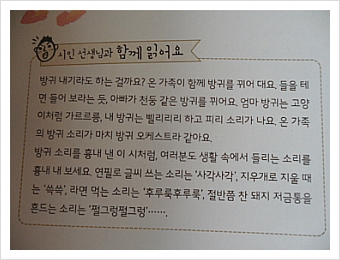 시인 선생님과 함께 읽어요
방귀 내기라도 하는 걸까요? 온 가족이 함께 방귀를 뀌어 대요. 들을 테
면 들어 보라는 듯, 아빠가 천둥 같은 방귀를 뀌어요. 엄마 방귀는 고양
이처럼 가르르릉, 내 방귀는 삘리리리 하고 피리 소리가 나요. 온 가족
의 방귀 소리가 마치 방귀 오케스트라 같아요.
방귀 소리를 흉내 낸 이 시처럼, 여러분도 생활 속에서 들리는 소리를
흉내 내 보세요. 연필로 글씨 쓰는 소리는 '사각사각', 지우개로 지울 때
는 '쓱쓱', 라면 먹는 소리는 '후루룩후루룩', 절반쯤 찬 돼지 저금통을
흔드는 소리는 '쩔그렁쩔그렁'…….